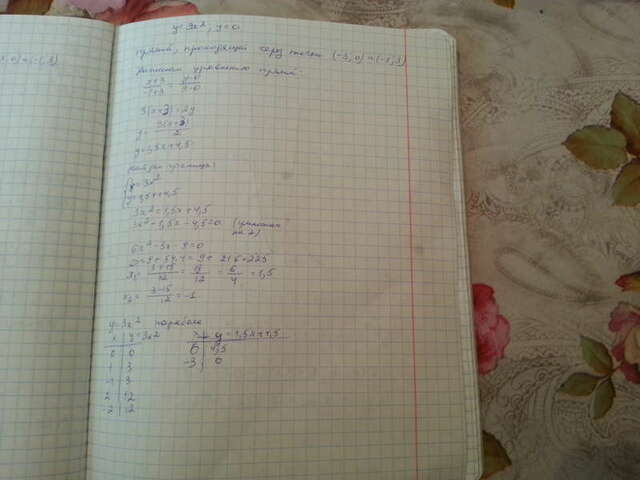 y=3x², y=0
прямой, проходящей через точки (-3,0) и (-1,3)
;0) и (-1,3)
Запишем уравнение прямой:
x+3/-1+3 = y-0/3-0
3(x+3)=2y
y= 3(x+3)/2
y=1,5x+4,5
Найдем границы:
{y=3x²
y=1,5x+4,5
3x²=1,5x+4,5
3x²-1,5x-4,5=0 (умножим на 2)
6x²-3x-9=0
D=9+54·4=9+216=225
x₁= 3+15/12 = 18/12 = 6/4 =1,5
x₂= 3-15/12 =-1
y=3x² парабола
x | y=3x² x | y=1,5x+4,5
0 | 0 0 | 4,5
1 | 3 -3 | 0
-1 | 3
2 | 12
-2 | 12